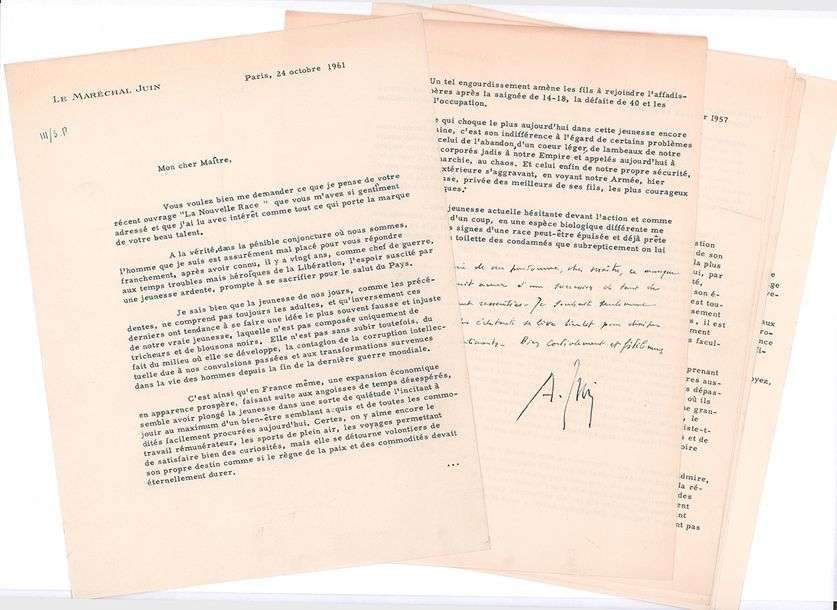 LE MARÉCHAL JUIN
Paris, 24 octobre 1961
III/S.P
Mon cher Maître,
Vous voulez bien me demander ce que je pense de votre
récent ouvrage "La Nouvelle Race " que vous m'avez si gentiment
adressé et que j'ai lu avec intérêt comme tout ce qui porte la marque
de votre beau talent.
A la vérité,dans la pénible conjoncture où nous sommes,
l'homme que je suis est assurément mal placé pour vous répondre
franchement, après avoir connu, il y a vingt ans, comme chef de guerre,
aux temps troubles mais héroïques de la Libération, l'espoir suscité par
une jeunesse ardente, prompte à se sacrifier pour le salut du Pays.
Je sais bien que la jeunesse de nos jours, comme les précé-
dentes, ne comprend pas toujours les adultes, et qu'inversement ces
derniers ont tendance à se faire une idée le plus souvent fausse et injuste
de notre vraie jeunesse, laquelle n'est pas composée uniquement de
tricheurs et de blousons noirs. Elle n'est pas sans subir toutefois, du
fait du milieu où elle se développe, la contagion de la corruption intellec-
tuelle due à nos convulsions passées et aux transformations survenues
dans la vie des hommes depuis la fin de la dernière guerre mondiale.
C'est ainsi qu'en France même, une expansion économique
en apparence prospère, faisant suite aux angoisses de temps désespérés,
semble avoir plongé la jeunesse dans une sorte de quiétude l'incitant à
jouir au maximum d'un bien-être semblant acquis et de toutes les commo-
dités facilement procurées aujourd'hui. Certes, on y aime encore le
travail rémunérateur, les sports de plein air, les voyages permettant
de satisfaire bien des curiosités, mais elle se détourne volontiers de
son propre destin comme si le règne de la paix et des commodités devait
éternellement durer.
...
Un tel engourdissement amène les fils à rejoindre l'affadis-
pères après la saignée de 14-18, la défaite de 40 et les
l'occupation.
e qui choque le plus aujourd'hui dans cette jeunesse encore
aine, c'est son indifférence à l'égard de certains problèmes
celui de l'abandon,d'un coeur léger, de lambeaux de notre
corporés jadis à notre Empire et appelés aujourd'hui à
narchie, au chaos. Et celui enfin de notre propre sécurité,
extérieure s'aggravant, en voyant notre Armée, hier
use, privée des meilleurs de ses fils, les plus courageux
ques.
jeunesse actuelle hésitante devant l'action et comme
d'un coup, en une espèce biologique différente me
s signes d'une race peut-être épuisée et déjà prête
toilette des condamnés que subrepticement on lui
cher maître,
Je souhaite
Bien cordialement et fidèlement
A. Juin
r 1957
stion
son
la plus
ui, par
té,
son é-
est tou-
sement
s, il est
ment
s facul-
prenant
res aus-
s dépas-
où ils
ne gran-
le,
iste-t-
s et de
oire
dmire,
la ré-
des
ent
nt
nt pas
aux
ro-
ce
oyez,